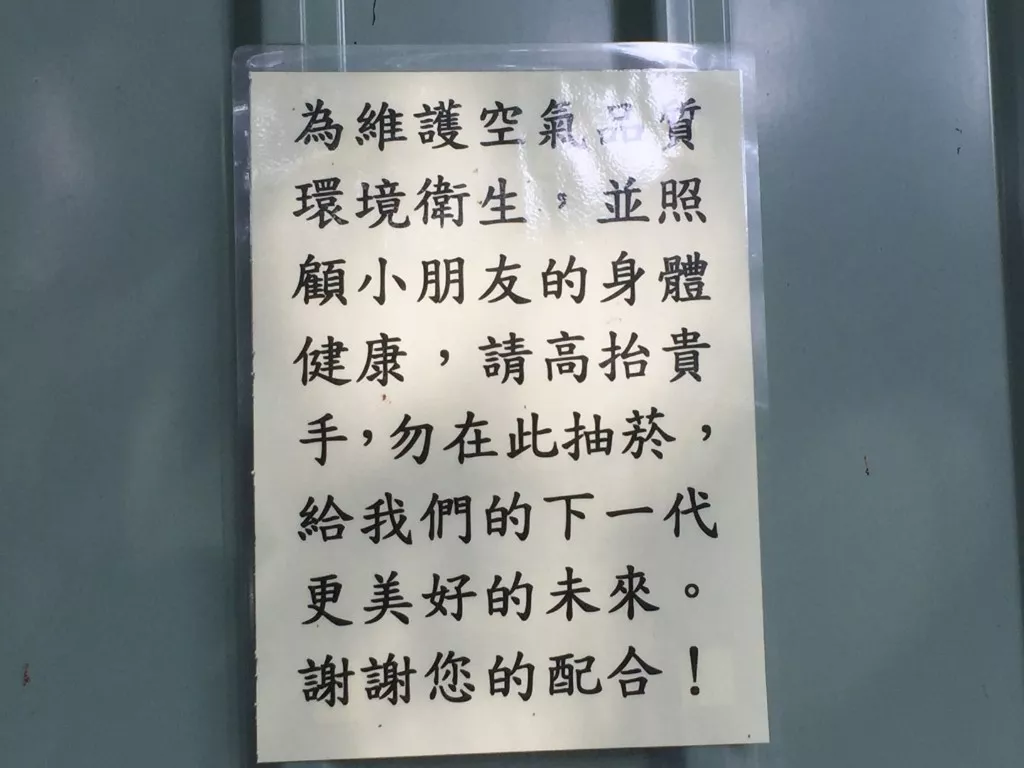 為維護空氣品質
環境衛生,並照
顧小朋友的身體
健康,請高抬貴
手,勿在此抽菸,
給我們的下一代
更美好的未來。
謝謝您的配合!